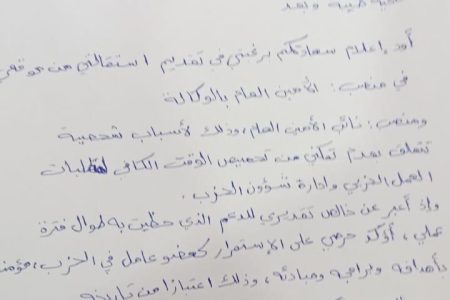 تحية طيبة وبعد
أود إعلام سعادتكم برغبتي في تقديم استقالتي من موقعي
في منصب: الأمين العام بالوكالة
ومنصب: نائب الأمين العام، وذلك لأسباب شخصية
تتعلق بعدم تمكني من تخصيص الوقت الكافي لمتطلبات
العمل الحزبي وإدارة شؤون الحزب.
وإذ أعبر عن خالص تقديري للدعم الذي حظيت به طوال فترة
عملي، أؤكد حرصي على الاستمرار كعضو عامل في الحزب، مؤمنة
بأهدافه وبرامجه ومبادئه، وذلك اعتباراً من تاريخه